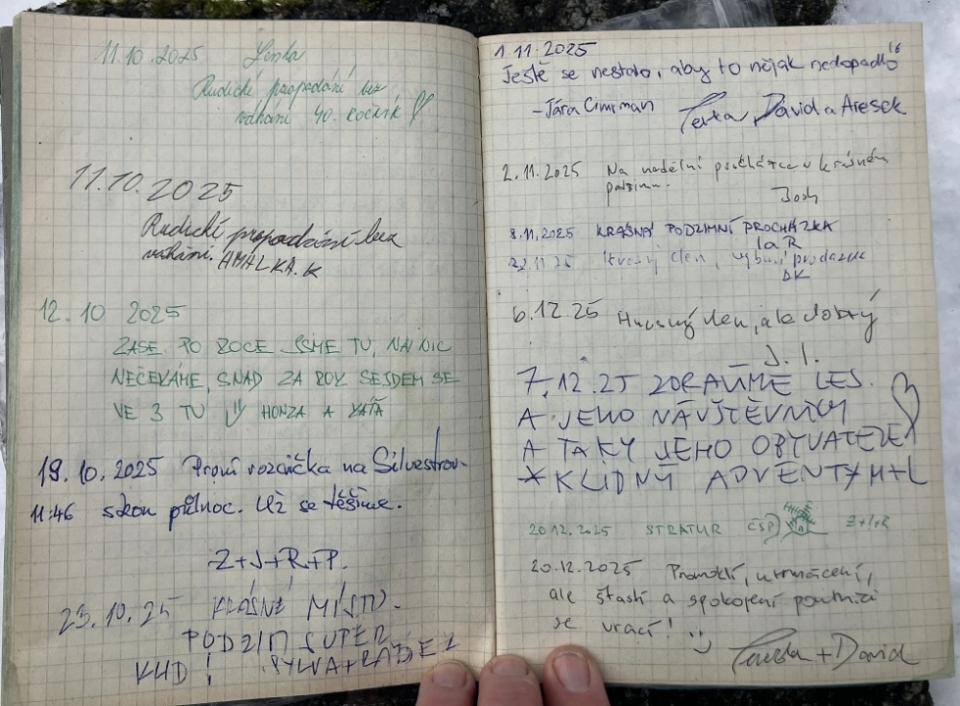 11.10.2025 Lenka
Rudické propadání bez
váhání 40. ročník
11.10.2025
Rudické propadání bez
váhání. AMÁLKA.K
12.10 2025
ZASE PO ROCE JSME TU, NA NIC
NEČEKÁME, SNAD ZA ROK SEJDEM SE
VE 3 TU HONZA A KÁŤA
19.10.2025 První vozička na Silvestrov-
11:46 skou půlnoc. Už se těšíme.
Z+J+R+P.
23.10.25 KRÁSNÉ MÍSTO.
PODZIM SUPER
KLID! SYLVA+
1.11.2025
Ještě se nestalo, aby to nějak nedopadlo
- Jára Cimrman Terka, David a Aresek
2.11.2025 Na nedělní procházce v krásném
podzimu.
Josh
8.11.2025 KRÁSNÁ PODZIMNÍ PROCHÁZKA
I a R
22.11.25
DK
6.12.25 den, ale dobrý
J. I.
7.12.25 ZDRAVÍME LES.
A JEHO NÁVŠTĚVNÍKY
A TAKY JEHO OBYVATELE
* KLIDNÝ ADVENT M+L
20.12.2025 STRATUR ČSP Z+I+R
20.12.2025 Promoklí, umrmácení,
ale šťastí a spokojení poutníci
se vrací!
Terezka + David